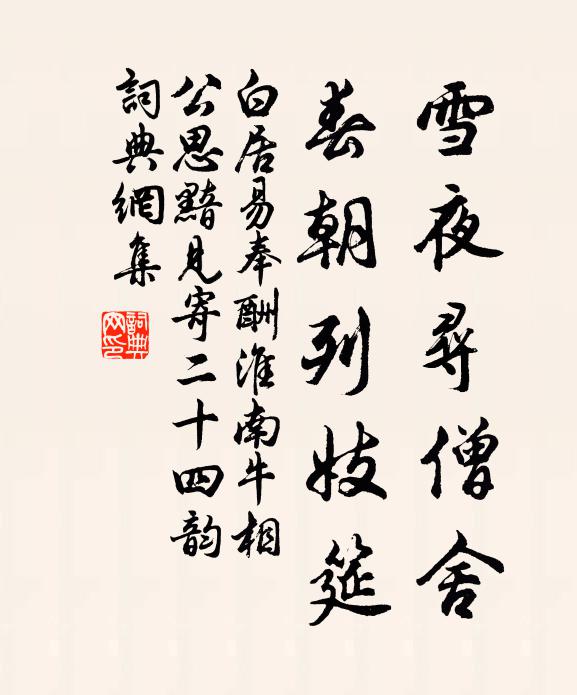 雪夜尋僧舍
春朝列妓筵
白居易奉酬淮南牛相
公思黯見寄二十四韵
詞典網集
詞典
網印